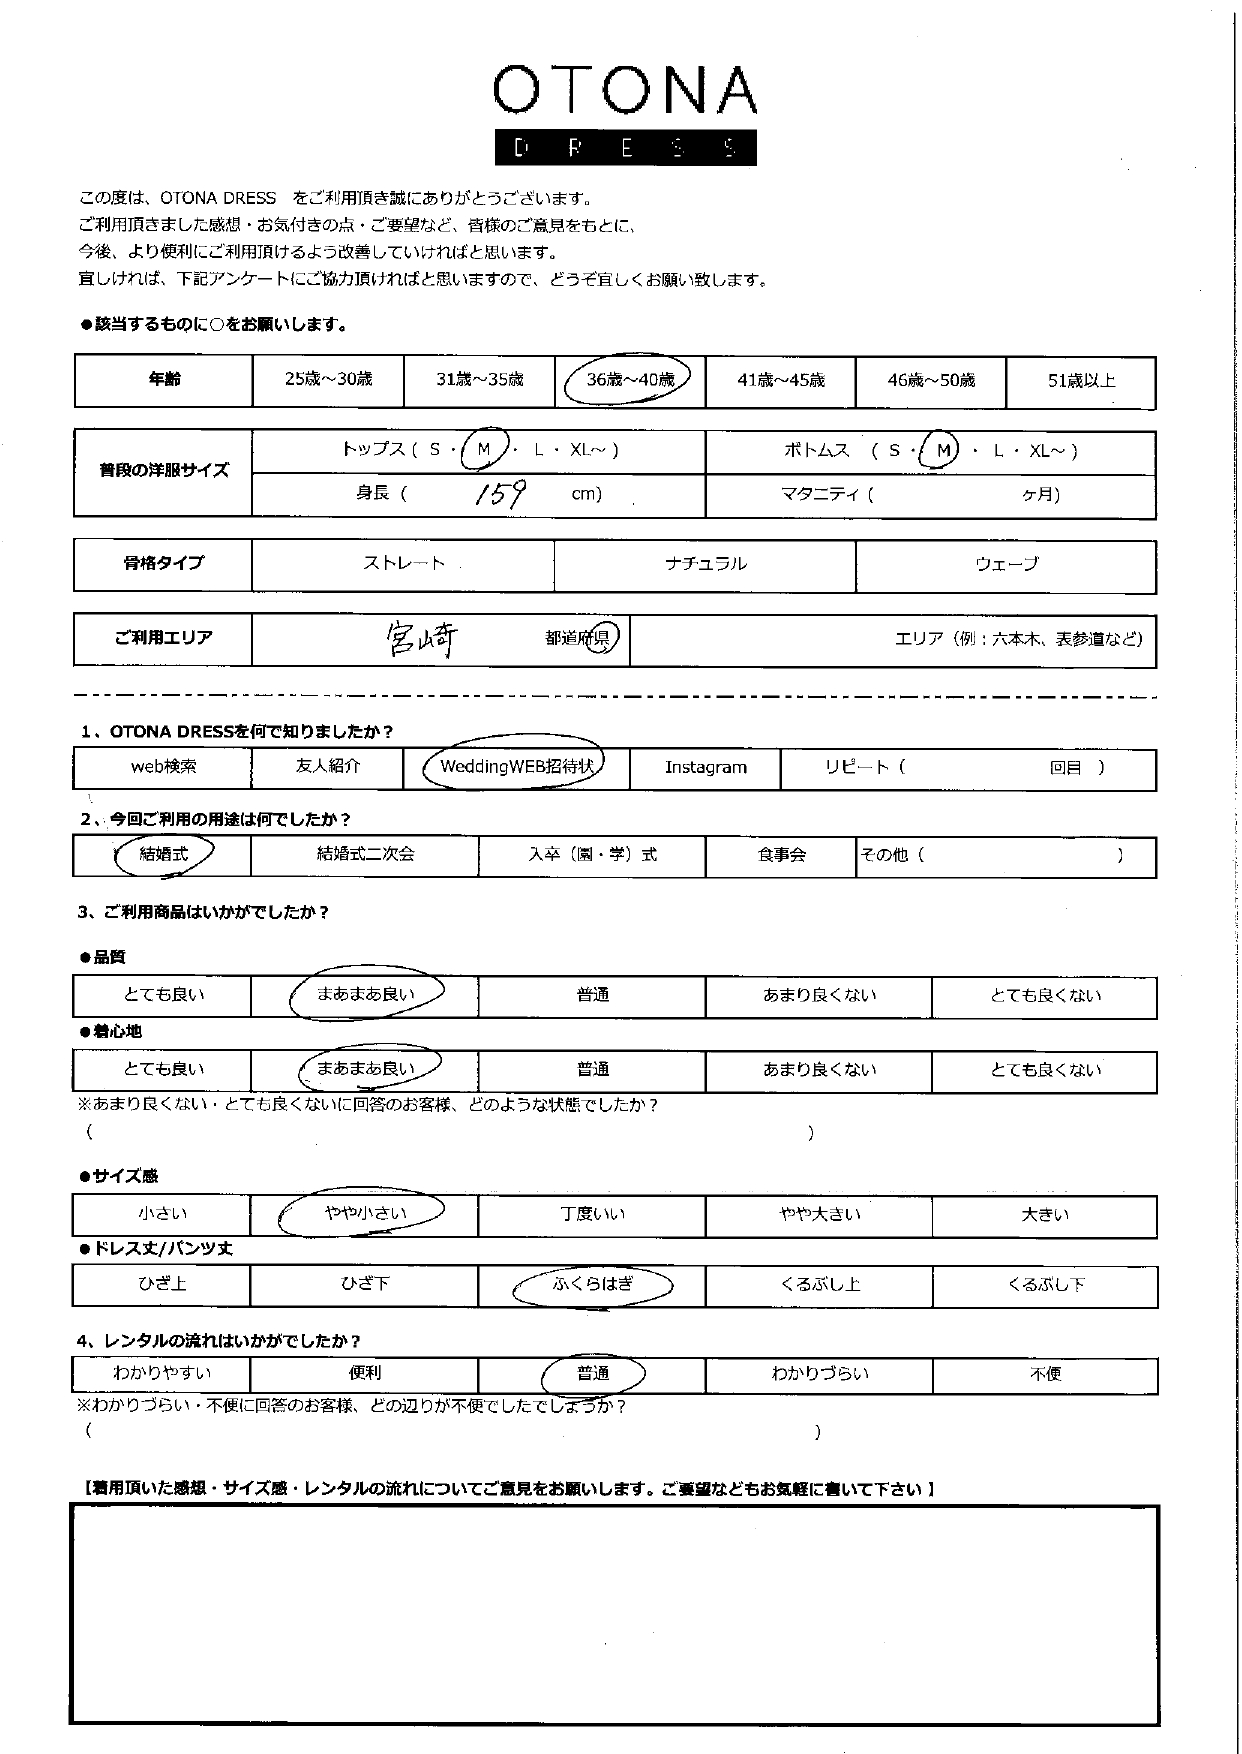 OTONA
DRESS
この度は、OTONA DRESS をご利用頂き誠にありがとうございます。
ご利用頂きました感想・お気付きの点・ご要望など、皆様のご意見をもとに、
今後、より便利にご利用頂けるよう改善していければと思います。
宜しければ、下記アンケートにご協力頂ければと思いますので、どうぞ宜しくお願い致します。
●該当するものに○をお願いします。
年齢 25歳～30歳 31歳～35歳 36歳～40歳 41歳～45歳 46歳～50歳 51歳以上
普段の洋服サイズ トップス ( S ・ M ・ L ・ XL～ ) ボトムス ( S ・ M ・ L ・ XL～ )
身長 ( 159 cm) マタニティ ( ヶ月)
骨格タイプ ストレート ナチュラル ウェーブ
ご利用エリア 宮崎 都道府県 エリア（例：六本木、表参道など）
1、OTONA DRESSを何で知りましたか？
web検索 友人紹介 WeddingWEB招待状 Instagram リピート ( 回目 )
2、今回ご利用の用途は何でしたか？
結婚式 結婚式二次会 入卒（園・学）式 食事会 その他 ( )
3、ご利用商品はいかがでしたか？
●品質
とても良い まあまあ良い 普通 あまり良くない とても良くない
●着心地
とても良い まあまあ良い 普通 あまり良くない とても良くない
※あまり良くない・とても良くないに回答のお客様、どのような状態でしたか？
( )
●サイズ感
小さい やや小さい 丁度いい やや大きい 大きい
●ドレス丈/パンツ丈
ひざ上 ひざ下 ふくらはぎ くるぶし上 くるぶし下
4、レンタルの流れはいかがでしたか？
わかりやすい 便利 普通 わかりづらい 不便
※わかりづらい・不便に回答のお客様、どの辺りが不便でしたでしょうか？
( )
【着用頂いた感想・サイズ感・レンタルの流れについてご意見をお願いします。ご要望などもお気軽に書いて下さい 】